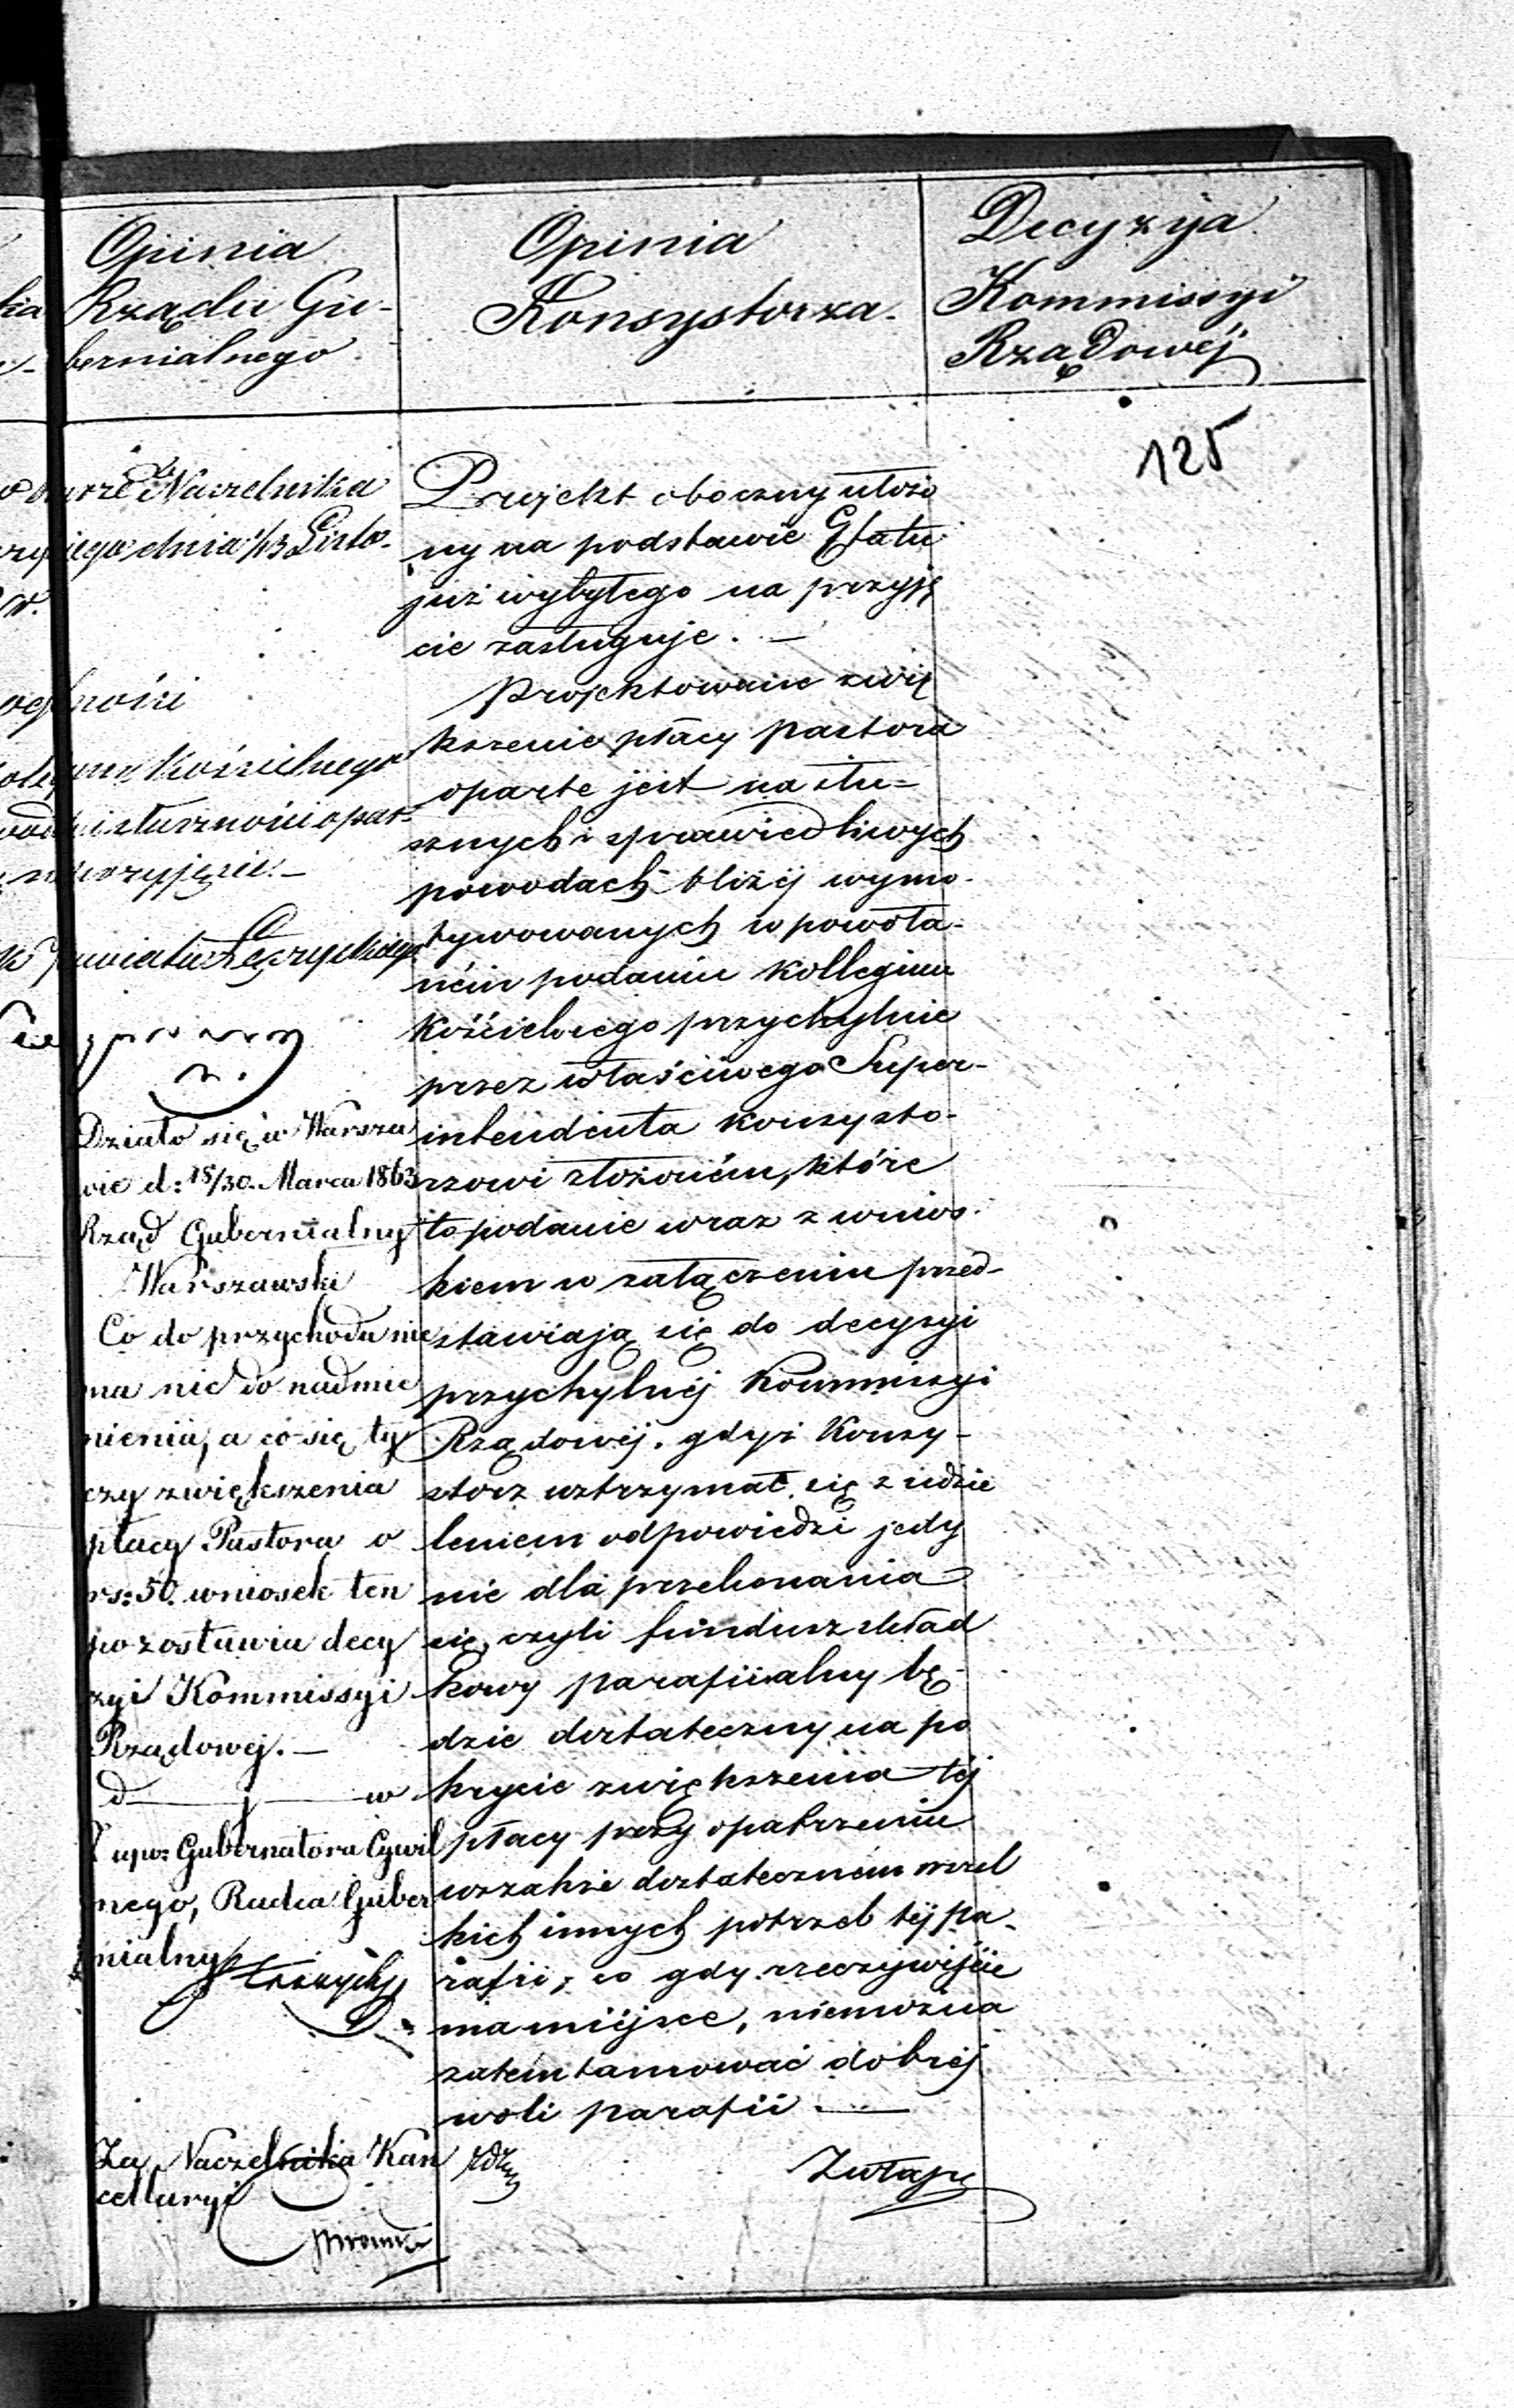 Opinia
Rządu Gu-
bernialnego.
Opinia
Konsystorza.
Decyzyja
Kommissyi
Rządowéj
125
Naczelnika
dnia 1/13
ności
Kościelnego
słuszności opar-
przyjęcie. —
Powiatu Łęczyckiego
Działo się w Warsza
wie d: 18/30. Marca 1863
Rząd Gubernialny
Warszawski
Co do przychodu nie
ma nic do nadmie
nienia, a co się ty
czy zwiększenia
płacy Pastora o
rs: 50. wniosek ten
pozostawia decy
zyi Kommissyi
Rządowej. —
d — j — w
Z upow: Gubernatora Cywil
nego, Radca Guber
nialny
Za Naczelnika Kan
cellaryi
Projekt oboczny ułożo
ny na podstawie Etatu
już wybyłego na przyję
cie zasługuje. —
Projektowane zwię
kszenie płacy pastora
oparte jest na słu-
sznych i sprawiedliwych
powodach bliżéj wymo-
tywowanych w powoła-
ném podaniu Kollegium
Kościelnego przychylnie
przez właściwego Super-
intendenta Konsysto-
rzowi złożoném, które
to podanie wraz z wnios-
kiem w załączeniu przed-
stawiają się do decyzyi
przychylnéj Kommissyi
Rządowéj. gdyż Konsy-
storz wstrzymał się z udzie
leniem odpowiedzi jedy
nie dla przekonania
się, czyli fundusz skład
kowy parafiialny bę-
dzie dostateczny na po
krycie zwiększenia téj
płacy przy opatrzeniu
wszakże dostateczném wszel
kich innych potrzeb téj pa-
rafii; co gdy rzeczywiście
ma miéjsce, niemożna
zatém tamować dobréj
woli parafii. —